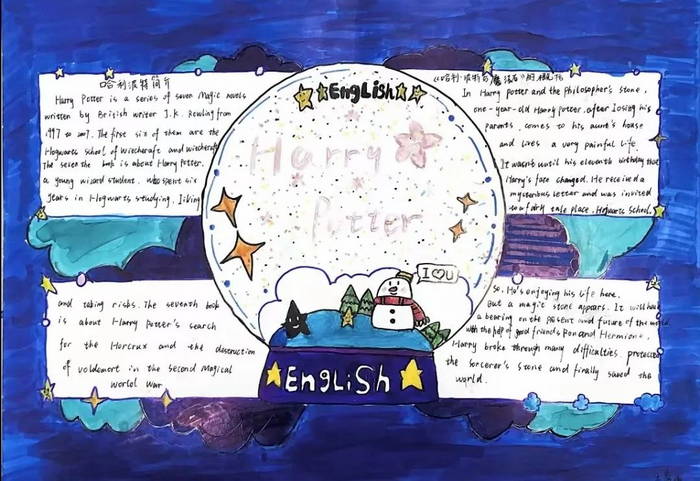 哈利波特简介
Harry Potter is a series of seven Magic novels
written by British writer J.K. Rowling from
1997 to 2007. The first six of them are the
Hogwarts school of Witchcraft and witchcraft
The seven the book is about Harry Potter.
a young wizard student. who spent six
Years in Hogwarts studying. living
and taking risks. The seventh book
is about Harry Potter's search
for the Horcrux and the destruction
of voldemort in the second Magical
world War
EngLish
Harry
Potter
I U
EngLiSh
《哈利·波特与魔法石》的
In Harry potter and the philosopher's stone,
one-year-old Harry Potter, after losing his
parents, comes to his aunt's house
and lives a very painful life.
It wasn't until his eleventh birthday that
Harry's face changed. He received a
mysterious letter and was invited
to a fairy tale place. Hogwarts school.
So. He's enjoying his life here.
But a magic stone appears. It will have
a bearing on the present and future of the world
with the help of good friends Ron and Hermione,
Harry broke through many difficulties. protected
the sorcerer's stone and finally saved the
world.